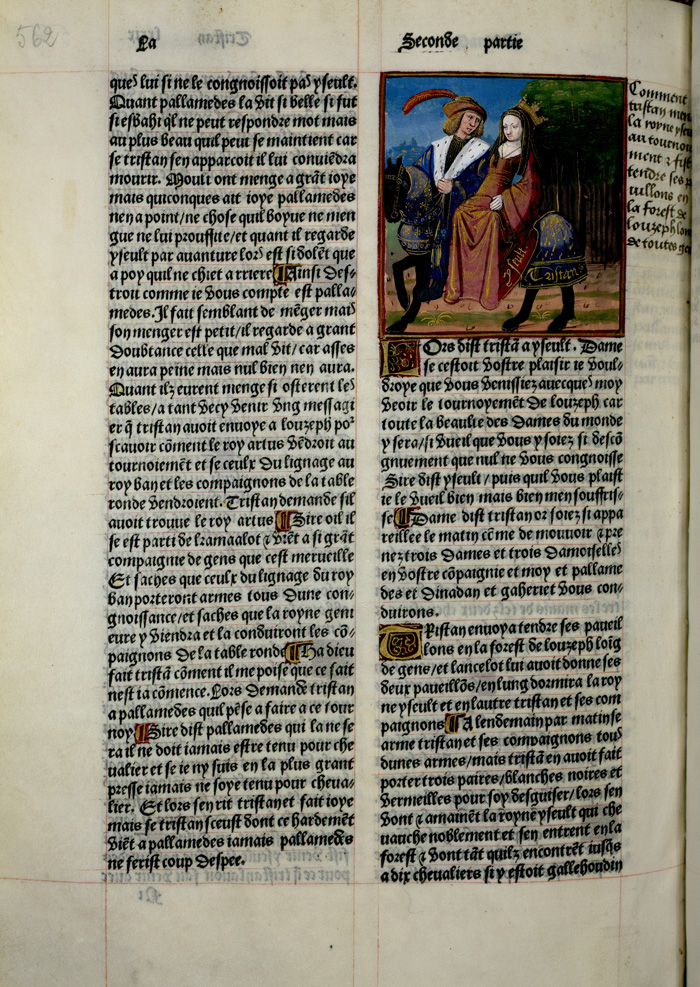 562
La
Seconde partie
ques lui si ne le congnoissoit pas yseult.
Quant pallamedes la vit si belle si fut
si esbahi ql ne peut respondre mot mais
au plus beau quil peut se maintient car
se tristan sen apparcoit il lui conuiẽdra
mourir. Moult ont menge a grãt ioye
mais quiconques ait ioye pallamedes
nen a point/ne chose quil boyue ne men
gue ne lui prouffite/et quant il regarde
yseult par auanture lors est si dolẽt que
a poy quil ne chiet arriere Ainsi des-
troit comme ie vous compte est palla-
medes. Il fait semblant de mẽger mais
son menger est petit/il regarde a grant
doubtance celle que mal vit/car asses
en aura peine mais nul bien nen aura.
Quant ilz eurent menge si osterent les
tables/a tant vecy venir vng messagi
er q̃ tristan auoit enuoye a louzeph por
scauoir cõment le roy artus vẽdroit au
tournoiemẽt et se ceulx du lignage au
roy ban et les compaignons de la table
ronde vendroient. Tristan demande sil
auoit trouue le roy artus Sire oil il
se est parti de kramaalot & vĩet a si grãt
compaignie de gens que cest merueille
Et saches que ceulx du lignage du roy
ban porteront armes tous dune con-
gnoissance/et saches que la royne geni
eure y viendra et la conduiront les cõ-
paignons de la table ronde Ha dieu
fait tristã cõment il me poise que ce fait
nest ia cõmence. Lors demande tristan
a pallamedes quil pẽse a faire a ce tour
noy Sire dist pallamedes qui la ne se
ra il ne doit iamais estre tenu pour che
ualier et se ie ny suis en la plus grant
presse iamais ne soye tenu pour cheua-
lier. Et lors sen rit tristan et fait ioye
mais se tristan sceust dont ce hardemẽt
viẽt a pallamedes iamais pallamedes
ne ferist coup despee.
yseult
Tristan
Comment
tristan men
la royne yseu
au tournoy
ment & fist
tendre ses p
uillons en
la forest de
louzeph loin
de toutes ge
LOrs dist tristã a yseult. Dame
se cestoit vostre plaisir ie voul-
droye que vous venissiez auecques moy
veoir le tournoyemẽt de louzeph car
toute la beaulte des dames du monde
y sera/si vueil que vous y soiez si descõ
gnuement que nul ne vous congnoisse
Sire dist yseult/puis quil vous plaist
ie le vueil bien mais bien men souffris-
se Dame dist tristan or soiez si appa
reillee le matin cõme de mouuoir & pre
nez trois dames et trois damoiselles
en vostre cõpaignie et moy et pallame
des et dinadan et gaheriet vous con-
duirons.
TRistan enuoya tendre ses paueil
lons en la forest de louzeph loĩg
de gens/et lancelot lui auoit donne ses
deux paueillõs/en lung dormira la roy
ne yseult et en lautre tristan et ses com
paignons A lendemain par matin se
arme tristan et ses compaignons tous
dunes armes/mais tristã en auoit fait
porter trois paires/blanches noires et
vermeilles pour soy desguiser/lors sen
vont & amainẽt la royne yseult qui che
uauche noblement et sen entrent en la
forest & vont tãt quilz encontrẽt iusqs
a dix cheualiers si y estoit gallehoudin